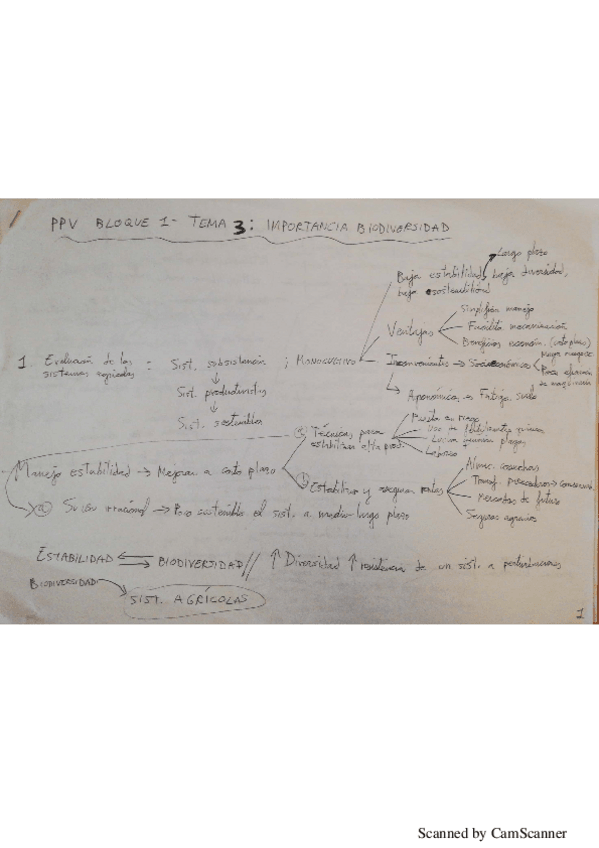 PPV BLOQUE 1- TEMA 3: IMPORTANCIA BIODIVERSIDAD
Largo plazo
Baja estabilidad, baja diversidad,
baja sostenibilidad
Ventajas
Simplifica manejo
Facilita mecanización
Beneficios económ. (corto plazo)
1 Evaluación de los
sistemas agrícolas : Sist. subsistencia ; MONOCULTIVO
Inconvenientes → Socioeconómicos
Mayor riesgo
Poca
de maquinaria
Agronómicos → Fatiga suelo
Sist. productivistas
Sist. sostenibles
Técnicas para
estabilizar alta prod.
Puesta en riego
Uso de fertilizantes químicos
Lucha química plagas
Laboreo
Manejo estabilidad → Mejoran a corto plazo
Establecer y asegurar rentas
Almac. cosechas
Transf. → conserva
Mercados de futuro
Seguros agrarios
→ Poco sostenible el sist. a medio-largo plazo
ESTABILIDAD ⇄ BIODIVERSIDAD // ↑ Diversidad ↑ resistencia de un sist. a perturbaciones
BIODIVERSIDAD
SIST. AGRÍCOLAS
1
Scanned by CamScanner